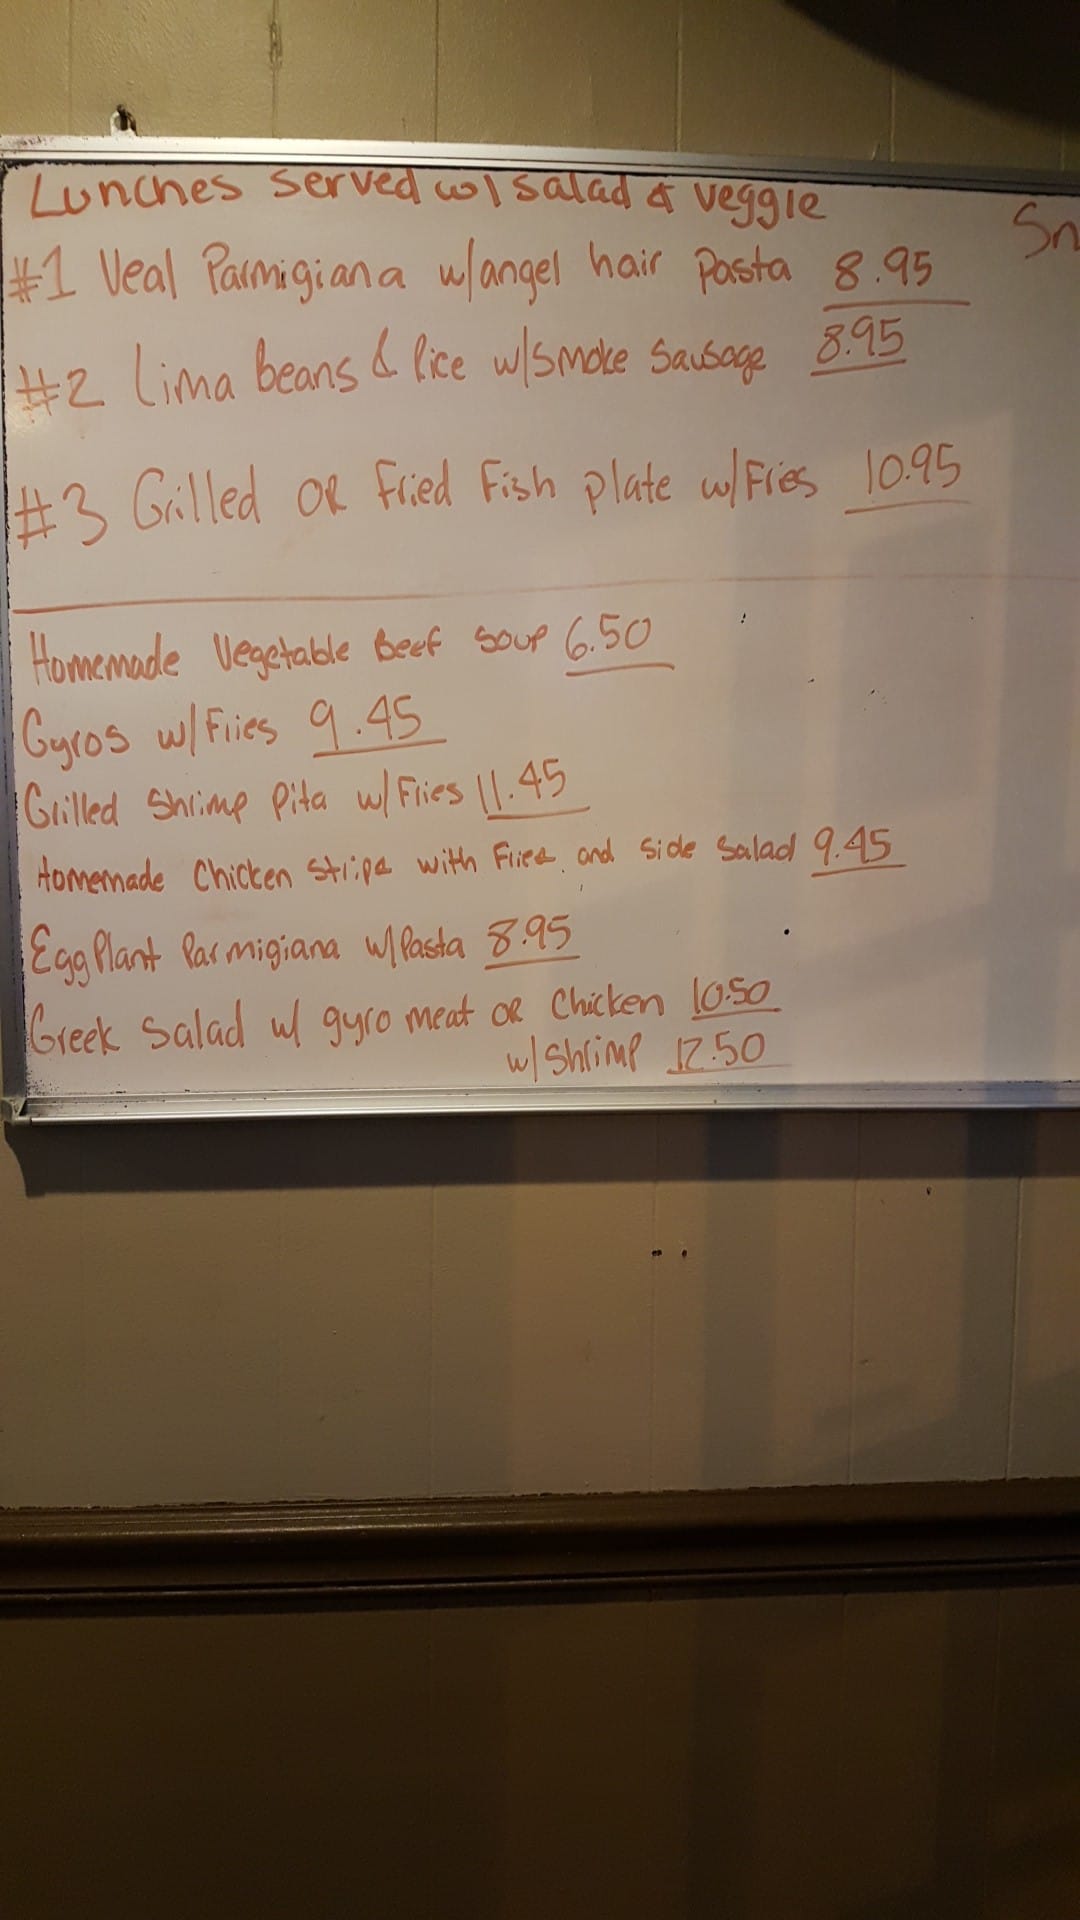 Lunches served w/ salad & veggie
Sn
#1 Veal Parmigiana w/angel hair Pasta 8.95
#2 Lima beans & Rice w/Smoke Sausage 8.95
#3 Grilled OR Fried Fish plate w/Fries 10.95
Homemade Vegetable Beef Soup 6.50
Gyros w/Fries 9.45
Grilled Shrimp Pita w/Fries 11.45
Homemade Chicken Strips with Fries and Side Salad 9.45
Egg Plant Parmigiana w/Pasta 8.95
Greek Salad w/ gyro meat OR Chicken 10.50
w/Shrimp 12.50